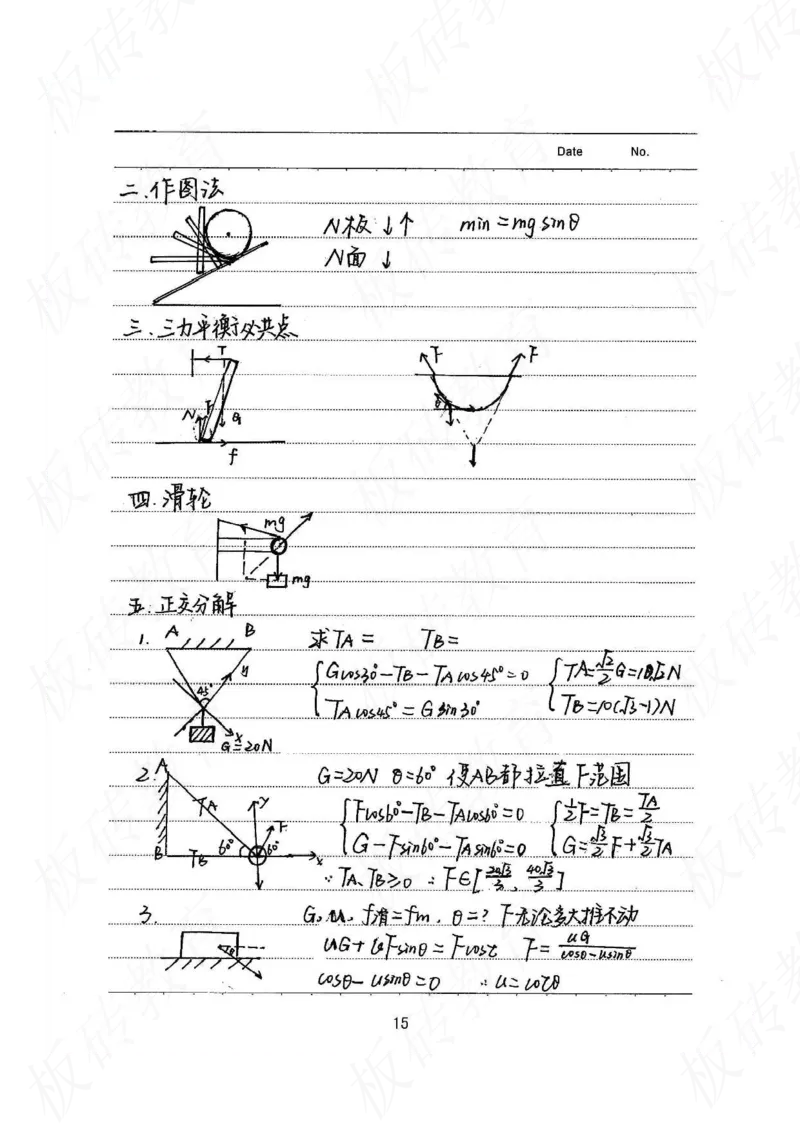 Date No.
二.作图法
N板:↓↑ min=mgsinθ
N面 ↓
三.三力平衡必共点
T
N F G
f
F F
G
四.滑轮
mg
mg
五.正交分解
1. A B 求TA= TB=
y 45° x G=20N
Gcos30°-TB-TAcos45°=0
TAcos45°=Gsin30°
TA=√2/2G=10√2N
TB=10(√3-1)N
2. A G=20N θ=60° 使AB都拉直 F范围
TA y F
B TB 60° 60° x
Fcos60°-TB-TAcos60°=0
G-Fsin60°-TAsin60°=0
1/2F=TB=TA/2
G=√3/2F+√3/2TA
∵TA、TB≥0 ∴F∈[20√3/3, 40√3/3]
3. G,u,f滑=fm,θ=? F无论多大推不动
θ
uG+uFsinθ=Fcosθ F=uG/cosθ-usinθ
cosθ-usinθ=0 ∴u=cotθ
15
板砖教育